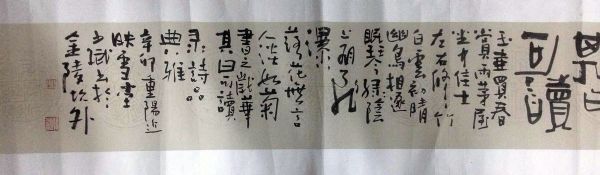 其曰
可讀
玉壺買春
賞雨茅屋
坐中佳士
左右修竹
白雲初晴
幽鳥相逐
眠琴綠陰
上有飛
瀑
落花無言
人淡如菊
書之歲華
其曰可讀
录詩品
典雅
辛卯重陽近
映雪書
於
金陵城外